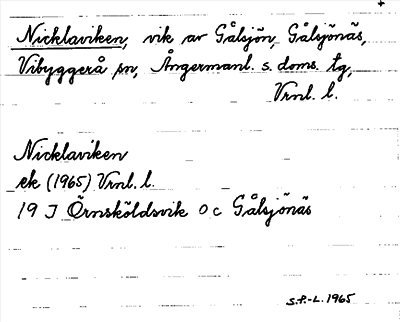 +
Nicklaviken, vik av Gålsjön, Gålsjönäs,
Vibyggerå sn, Ångermanl. s. doms. tg,
Vrnl. l.
Nicklaviken
ek (1965) Vrnl. l.
19 J Örnsköldsvik O c Gålsjönäs
S.P.-L. 1965